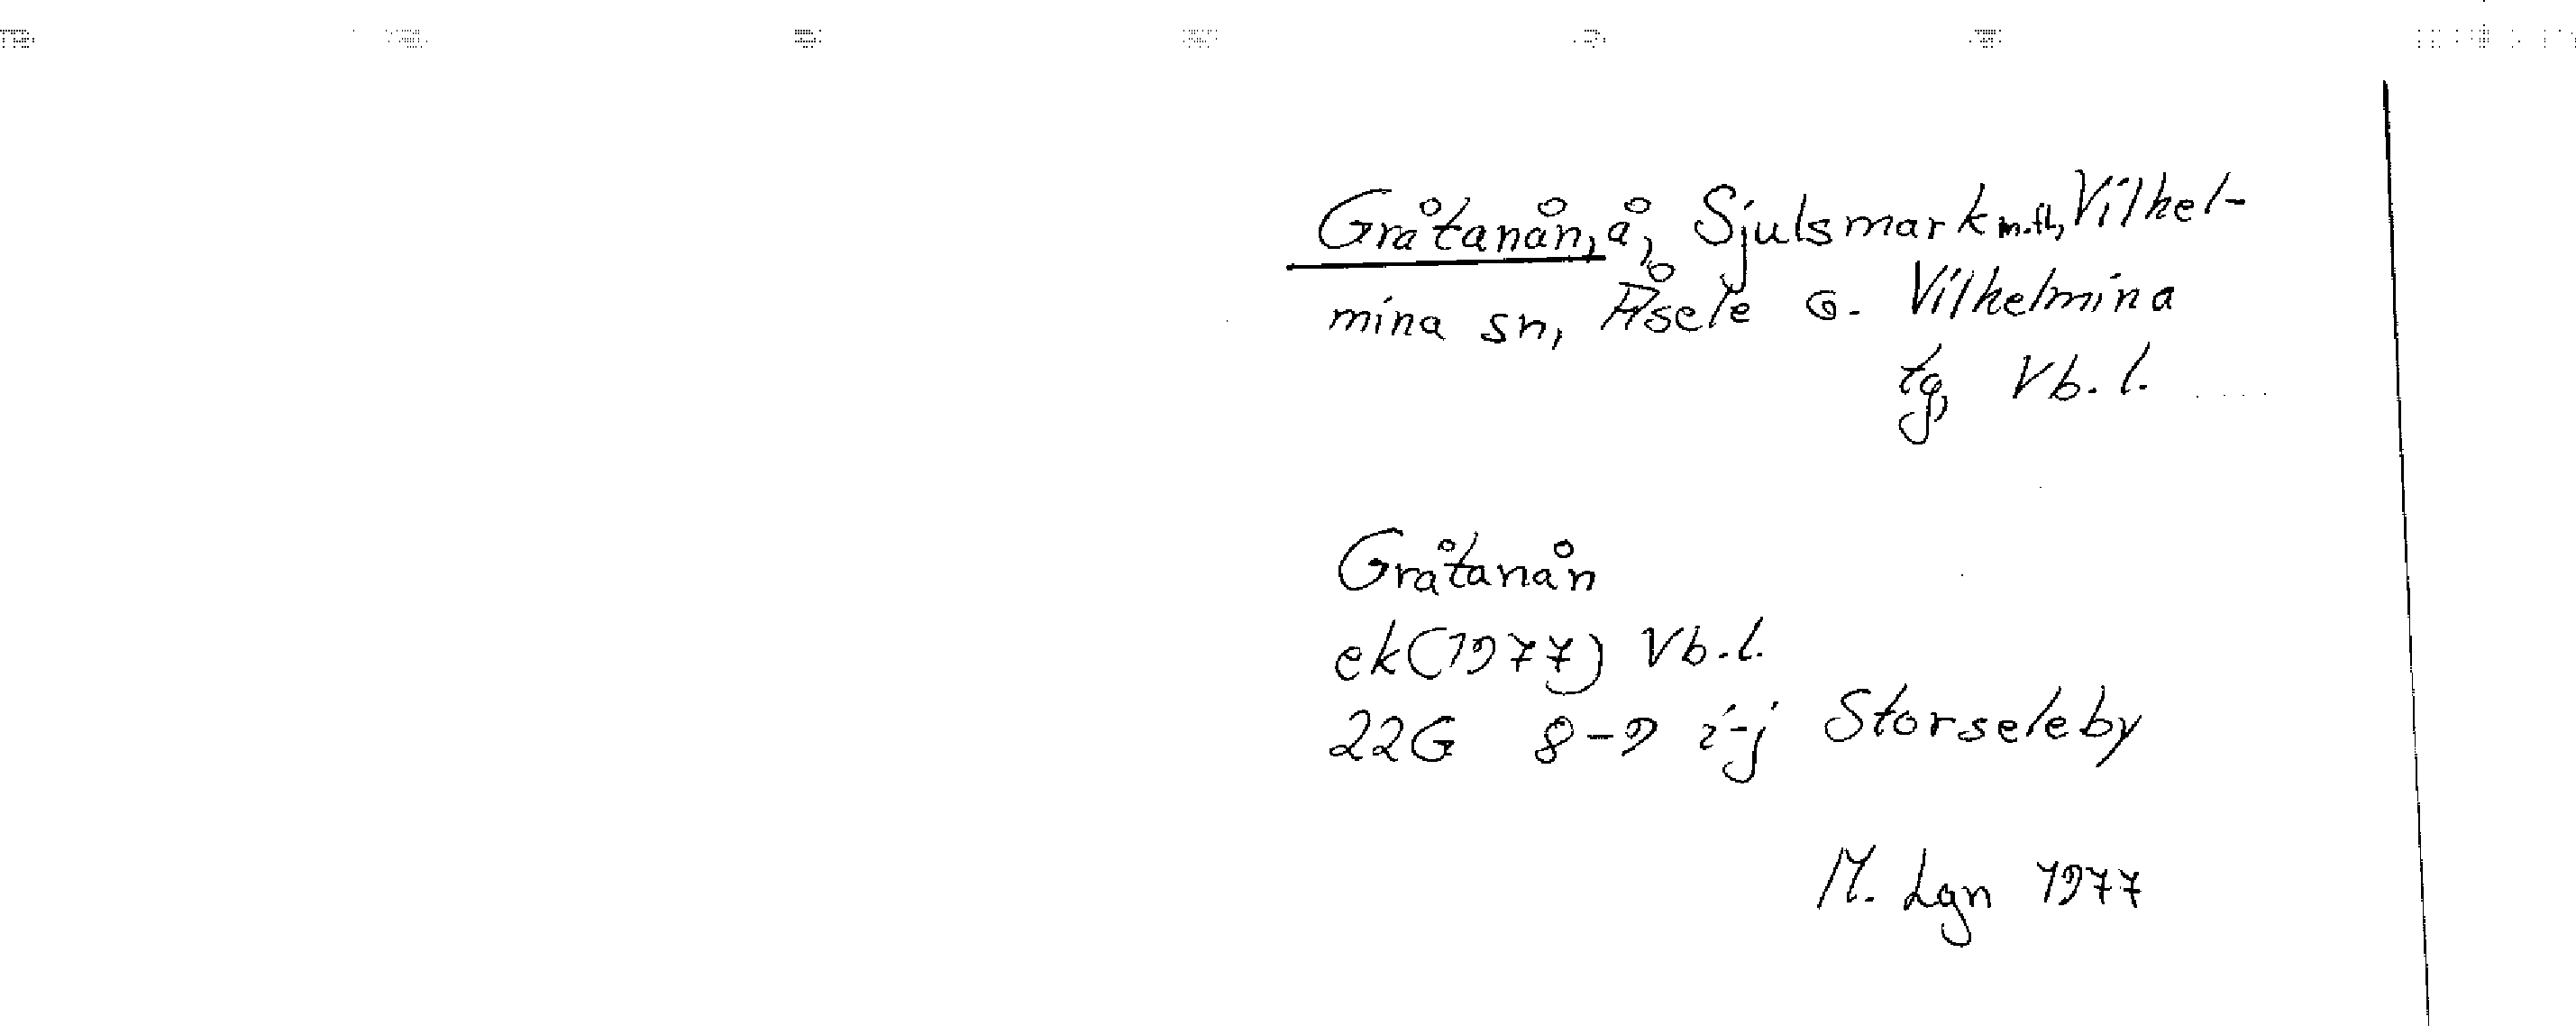 Gråtanån, å, Sjulsmark m.fl., Vilhel-
mina sn, Åsele o. Vilhelmina
tg, Vb.l.
Gråtanån
ek(1977) Vb.l.
22G 8-9 i-j Storseleby
M. Lgn 1977